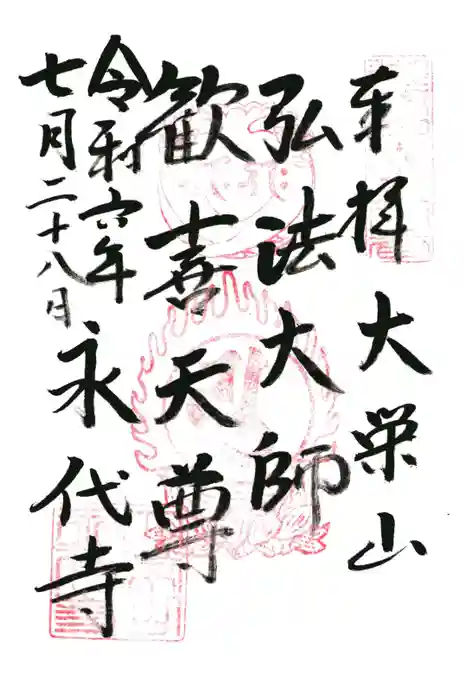 奉拝 大栄山
弘法大師
歓喜天尊
令和六年
七月二十八日
永代寺